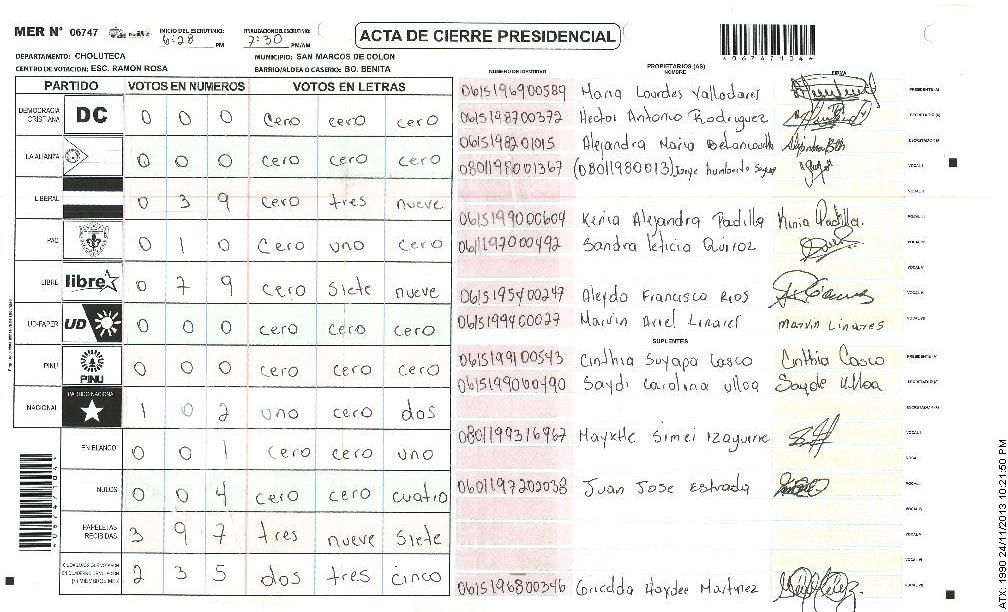 MER N° 06747
INICIO DEL ESCRUTINIO: 6:28 PM
FINALIZACION DEL ESCRUTINIO: 7:30 PM/AM
ACTA DE CIERRE PRESIDENCIAL
*06747104*
DEPARTAMENTO: CHOLUTECA
MUNICIPIO: SAN MARCOS DE COLON
CENTRO DE VOTACION: ESC. RAMON ROSA
BARRIO/ALDEA O CASERIO: BO. BENITA
PARTIDO VOTOS EN NUMEROS VOTOS EN LETRAS
DEMOCRACIA CRISTIANA DC 0 0 0 cero cero cero
LA ALIANZA 0 0 0 cero cero cero
LIBERAL 0 3 9 cero tres nueve
PAC 0 1 0 cero uno cero
LIBRE libre 0 7 9 cero siete nueve
UD-FAPER UD 0 0 0 cero cero cero
PINU PINU 0 0 0 cero cero cero
NACIONAL PARTIDO NACIONAL 1 0 2 uno cero dos
EN BLANCO 0 0 1 cero cero uno
NULOS 0 0 4 cero cero cuatro
PAPELETAS RECIBIDAS 3 9 7 tres nueve siete
2 3 5 dos tres cinco
*06747104*
NUMERO DE IDENTIDAD
PROPIETARIOS (AS)
NOMBRE
FIRMA
0615196900589 Maria Lourdes Valladares PRESIDENTE (A)
0615198700372 Hector Antonio Rodriguez SECRETARIO (A)
0615198201015 Alejandra Maria Betancourth ESCRUTADOR (A)
0801198001367 (08011980013) Jorge humberto VOCAL I
VOCAL II
0615199000604 Kenia Alejandra Padilla Kenia Padilla. VOCAL III
0611197000492 Sandra leticia Quiroz VOCAL IV
VOCAL V
0615195400247 Aleyda Francisca Rios VOCAL VI
0615199400027 Marvin Ariel Linares Marvin Linares VOCAL VII
SUPLENTES
0615199100543 Cinthia Suyapa Casco Cinthia Casco PRESIDENTE (A)
0615199000490 Saydi Carolina ulloa Sayde Ulloa SECRETARIO (A)
ESCRUTADOR (A)
0801199316967 Maykelle Simei Izaguirre VOCAL I
VOCAL II
0601197202038 Juan Jose Estrada VOCAL III
VOCAL IV
VOCAL V
VOCAL VI
0615196800346 Griselda Haydee Martinez VOCAL VII
ATX: 1990 24/11/2013 10:21:50 PM